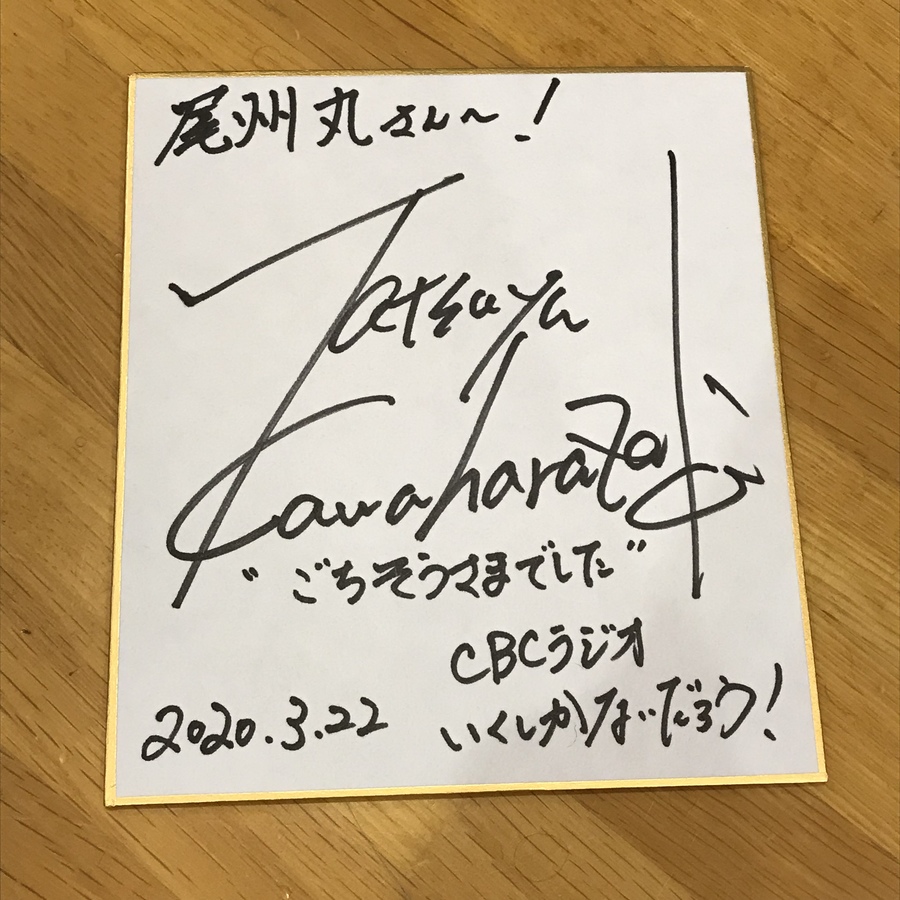 尾州丸さん〜!
Tatsuya
Kawaharazaki
"ごちそうさまでした"
CBCラジオ
いくしかないだろう!
2020.3.22